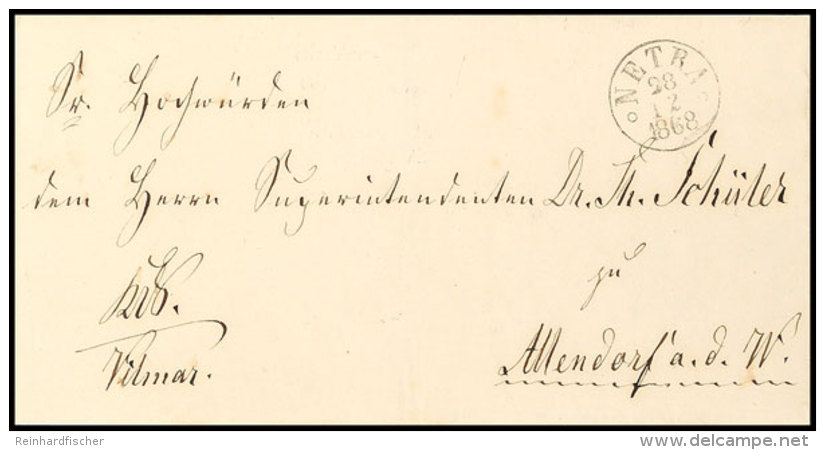 NETRA
28
12
1868
Sr. Hochwürden
dem Herrn Superintendenten Dr. Th. Schüler
zu
Allendorf a. d. W.
Vilmar.
Reinhardfischer
www.delcampe.net